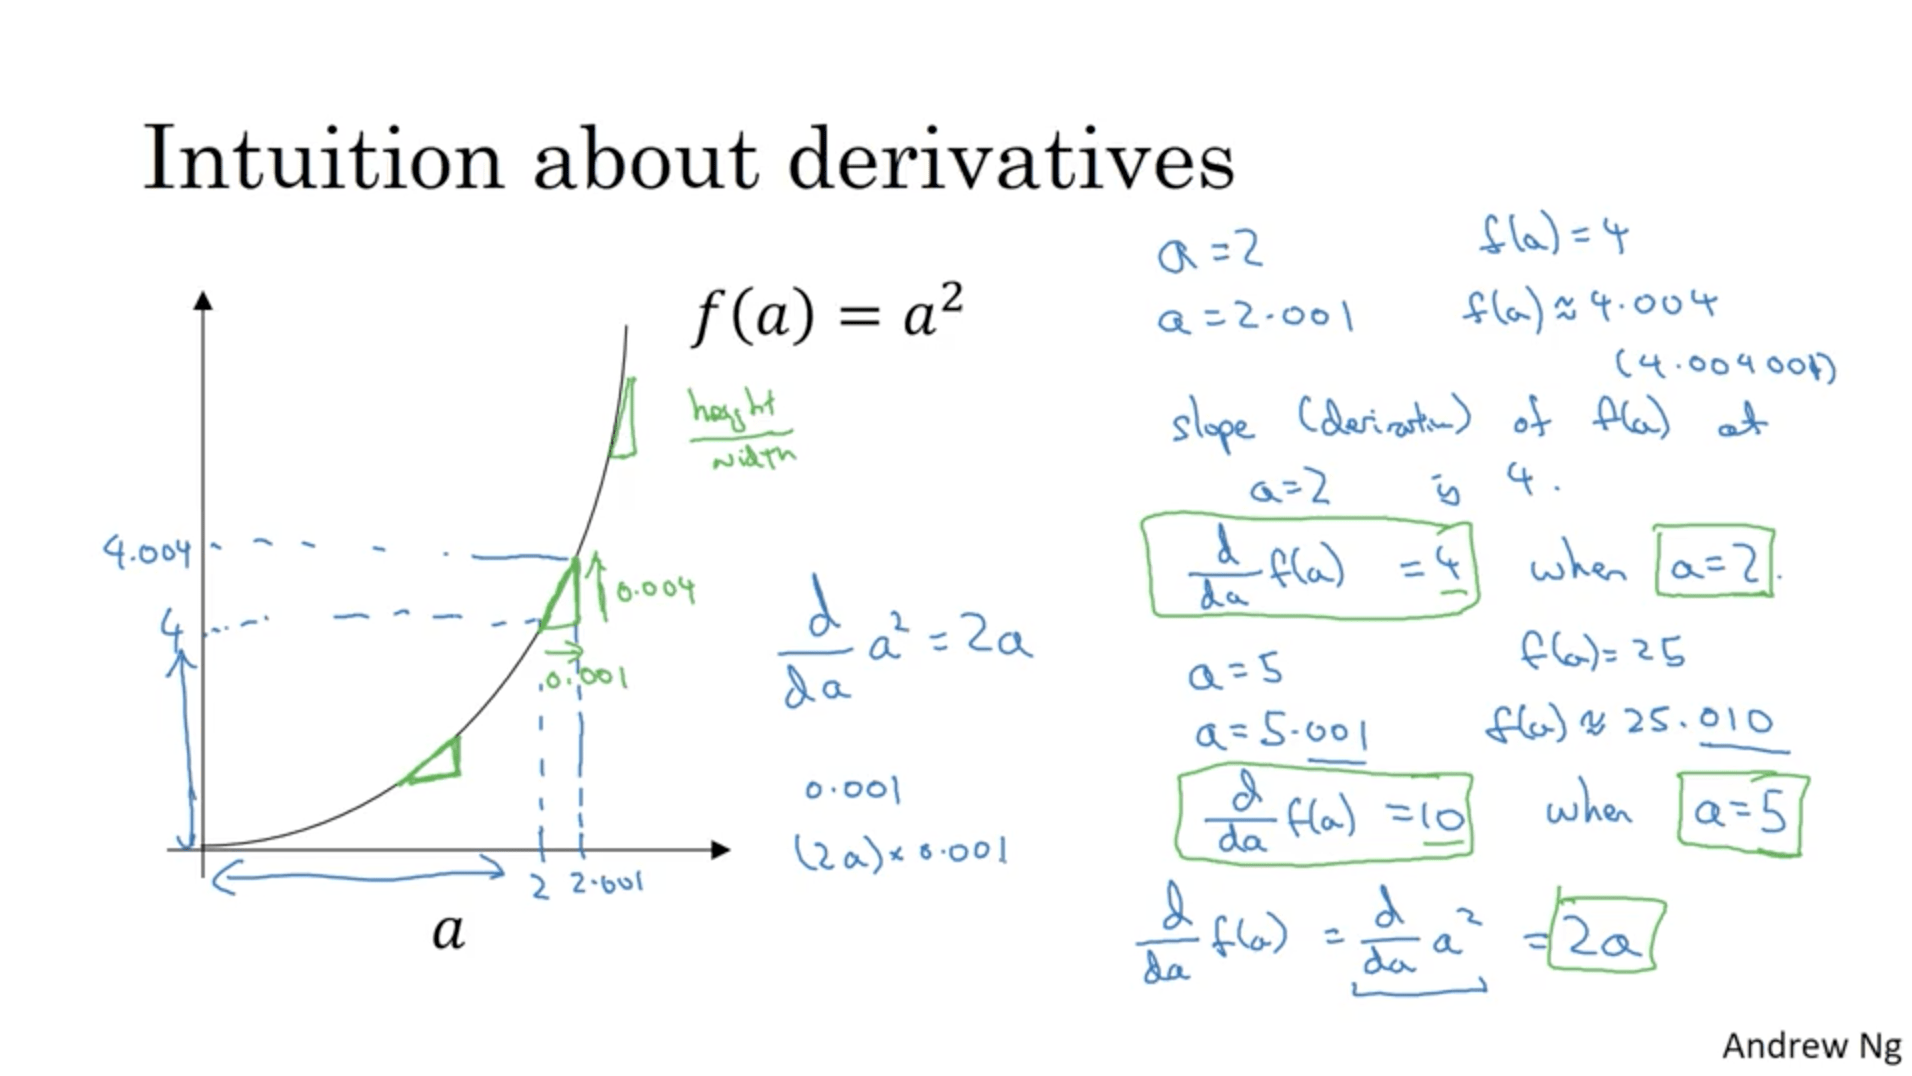 Intuition about derivatives
f(a) = a²
height
width
4.004
4
0.004
0.001
2 2.001
a
d/da a² = 2a
0.001
(2a) × 0.001
a = 2 f(a) = 4
a = 2.001 f(a) ≈ 4.004
(4.004001)
slope (derivative) of f(a) at
a = 2 is 4.
d/da f(a) = 4 when a = 2.
a = 5 f(a) = 25
a = 5.001 f(a) ≈ 25.010
d/da f(a) = 10 when a = 5
d/da f(a) = d/da a² = 2a
Andrew Ng